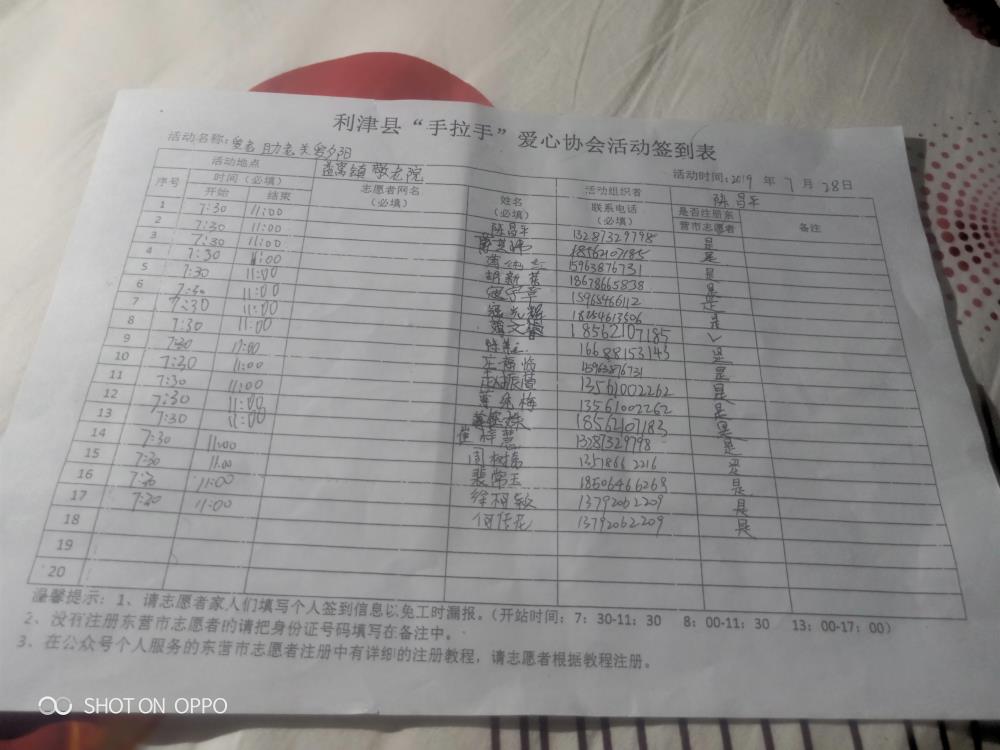 利津县“手拉手”爱心协会活动签到表
活动名称：爱老助老关爱夕阳
活动时间：2019 年 7 月 28日
活动地点 盐窝镇敬老院 活动组织者 陈昌平
序号 时间（必填） 志愿者网名（必填） 姓名（必填） 联系电话（必填） 是否注册东营市志愿者 备注
开始 结束
1 7:30 11:00 陈昌平 13287329798 是
2 7:30 11:00 18562107185 是
3 7:30 11:00 15963876731 是
4 7:30 11:00 胡新 18678665838 是
5 7:30 11:00 15965466112 是
6 7:30 11:00 18254613506 是
7 7:30 11:00 18562107185 ✓
8 7:30 11:00 16688153143 是
9 7:30 11:00 15963876731 是
10 7:30 11:00 13561002262 是
11 7:30 11:00 梅 13561002262 是
12 7:30 11:00 18562107183 是
13 7:30 11:00 崔 慧 13287329798 是
14 7:30 11:00 周树 1351866 2216 是
15 7:30 11:00 玉 18506466268 是
16 7:30 11:00 徐 13792062209 是
17 7:30 11:00 何 花 13792062209 是
18
19
20
温馨提示：1、请志愿者家人们填写个人签到信息以免工时漏报。（开站时间：7：30-11：30 8：00-11：30 13：00-17：00）
2、没有注册东营市志愿者的请把身份证号码填写在备注中。
3、在公众号个人服务的东营市志愿者注册中有详细的注册教程，请志愿者根据教程注册。
SHOT ON OPPO